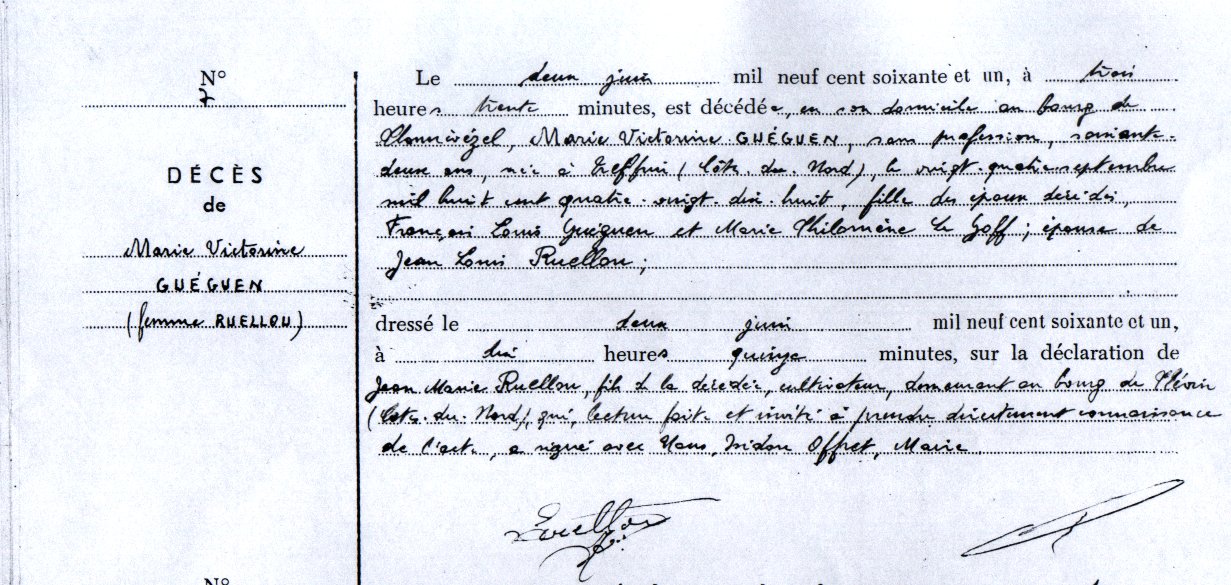 N°
7
DÉCÈS
de
Marie Victorine
GUÉGUEN
(femme RUELLOU)
Le deux juin mil neuf cent soixante et un, à trois
heures trente minutes, est décédée, en son domicile au bourg de
Plounévézel, Marie Victorine GUÉGUEN, sans profession, soixante-
deux ans, née à Treffrin (Côtes-du-Nord), le vingt-quatre septembre
mil huit cent quatre-vingt-dix-huit, fille des époux décédés,
François Louis Guéguen et Marie Philomène Le Goff ; épouse de
Jean Louis Ruellou ;
dressé le deux juin mil neuf cent soixante et un,
à dix heures quinze minutes, sur la déclaration de
Jean Marie Ruellou, fils de la décédée, cultivateur, demeurant au bourg de Plévin
(Côtes-du-Nord), qui, lecture faite et invité à prendre directement connaissance
de l'acte, a signé avec Nous, Isidore Offret, Maire
Ruellou
N°